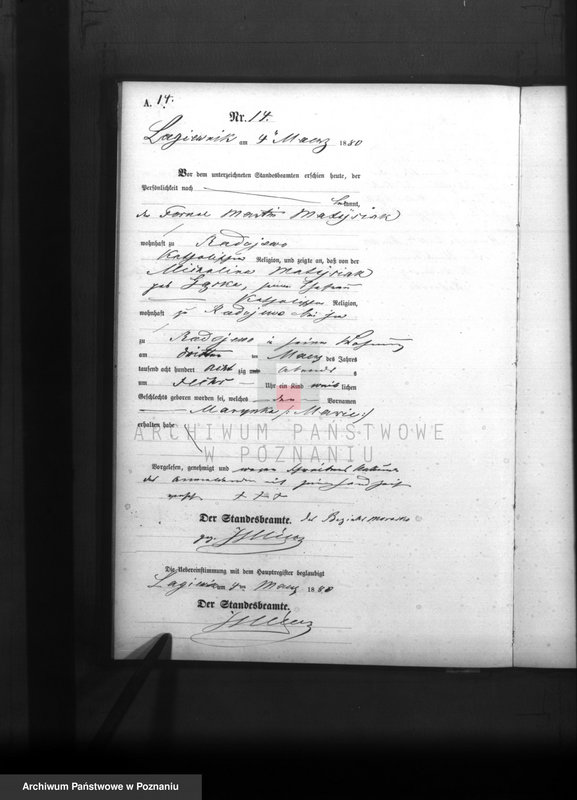 A. 14.
Nr. 14.
Lagiewnik am 4t Maerz 1880
Vor dem unterzeichneten Standesbeamten erschien heute, der
Persönlichkeit nach
bekannt,
der Fornal Martin Matysiak
wohnhaft zu Radojewo
katholischer Religion, und zeigte an, daß von der
Michalina Matysiak
geb , seiner Ehefrau
katholischer Religion,
wohnhaft zu Radojewo bei ihm
zu Radojewo in seiner Wohnung
am dritten ten Maerz des Jahres
tausend acht hundert acht zig abends s
um sechs Uhr ein Kind weib lichen
Geschlechts geboren worden sei, welches den Vornamen
Marynka /: Marie :/
erhalten habe
ARCHIWUM PAŃSTWOWE
W POZNANIU
Vorgelesen, genehmigt und wegen Schreibens
des Anmeldenden mit
+ + +
Der Standesbeamte. des Bezirks Morasko
gez.
Die Uebereinstimmung mit dem Hauptregister beglaubigt
am 4ten Maerz 1880
Der Standesbeamte.
Archiwum Państwowe w Poznaniu